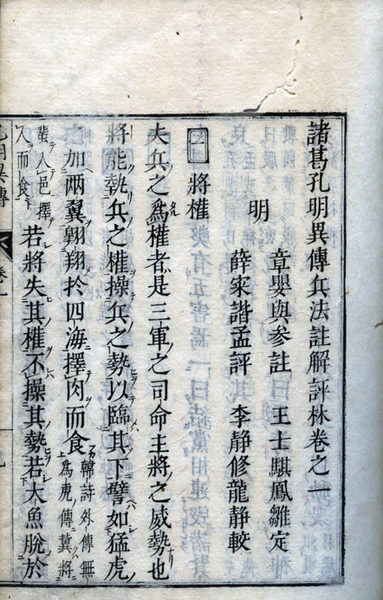 諸葛孔明異傳兵法註解評林卷之一
章嬰與參註　王士騏鳳雛定
明
薛寀諧孟評　李靜修龍靜較
將權
夫兵之爲權者是三軍之司命主將之威勢也
將能執兵之權操兵之勢以臨其下譬如猛虎
之加兩翼翺翔於四海擇肉而食
韓詩外傳無
爲虎傳翼將
蜚入邑擇
人而食
若將失其權不操其勢若大魚脫於